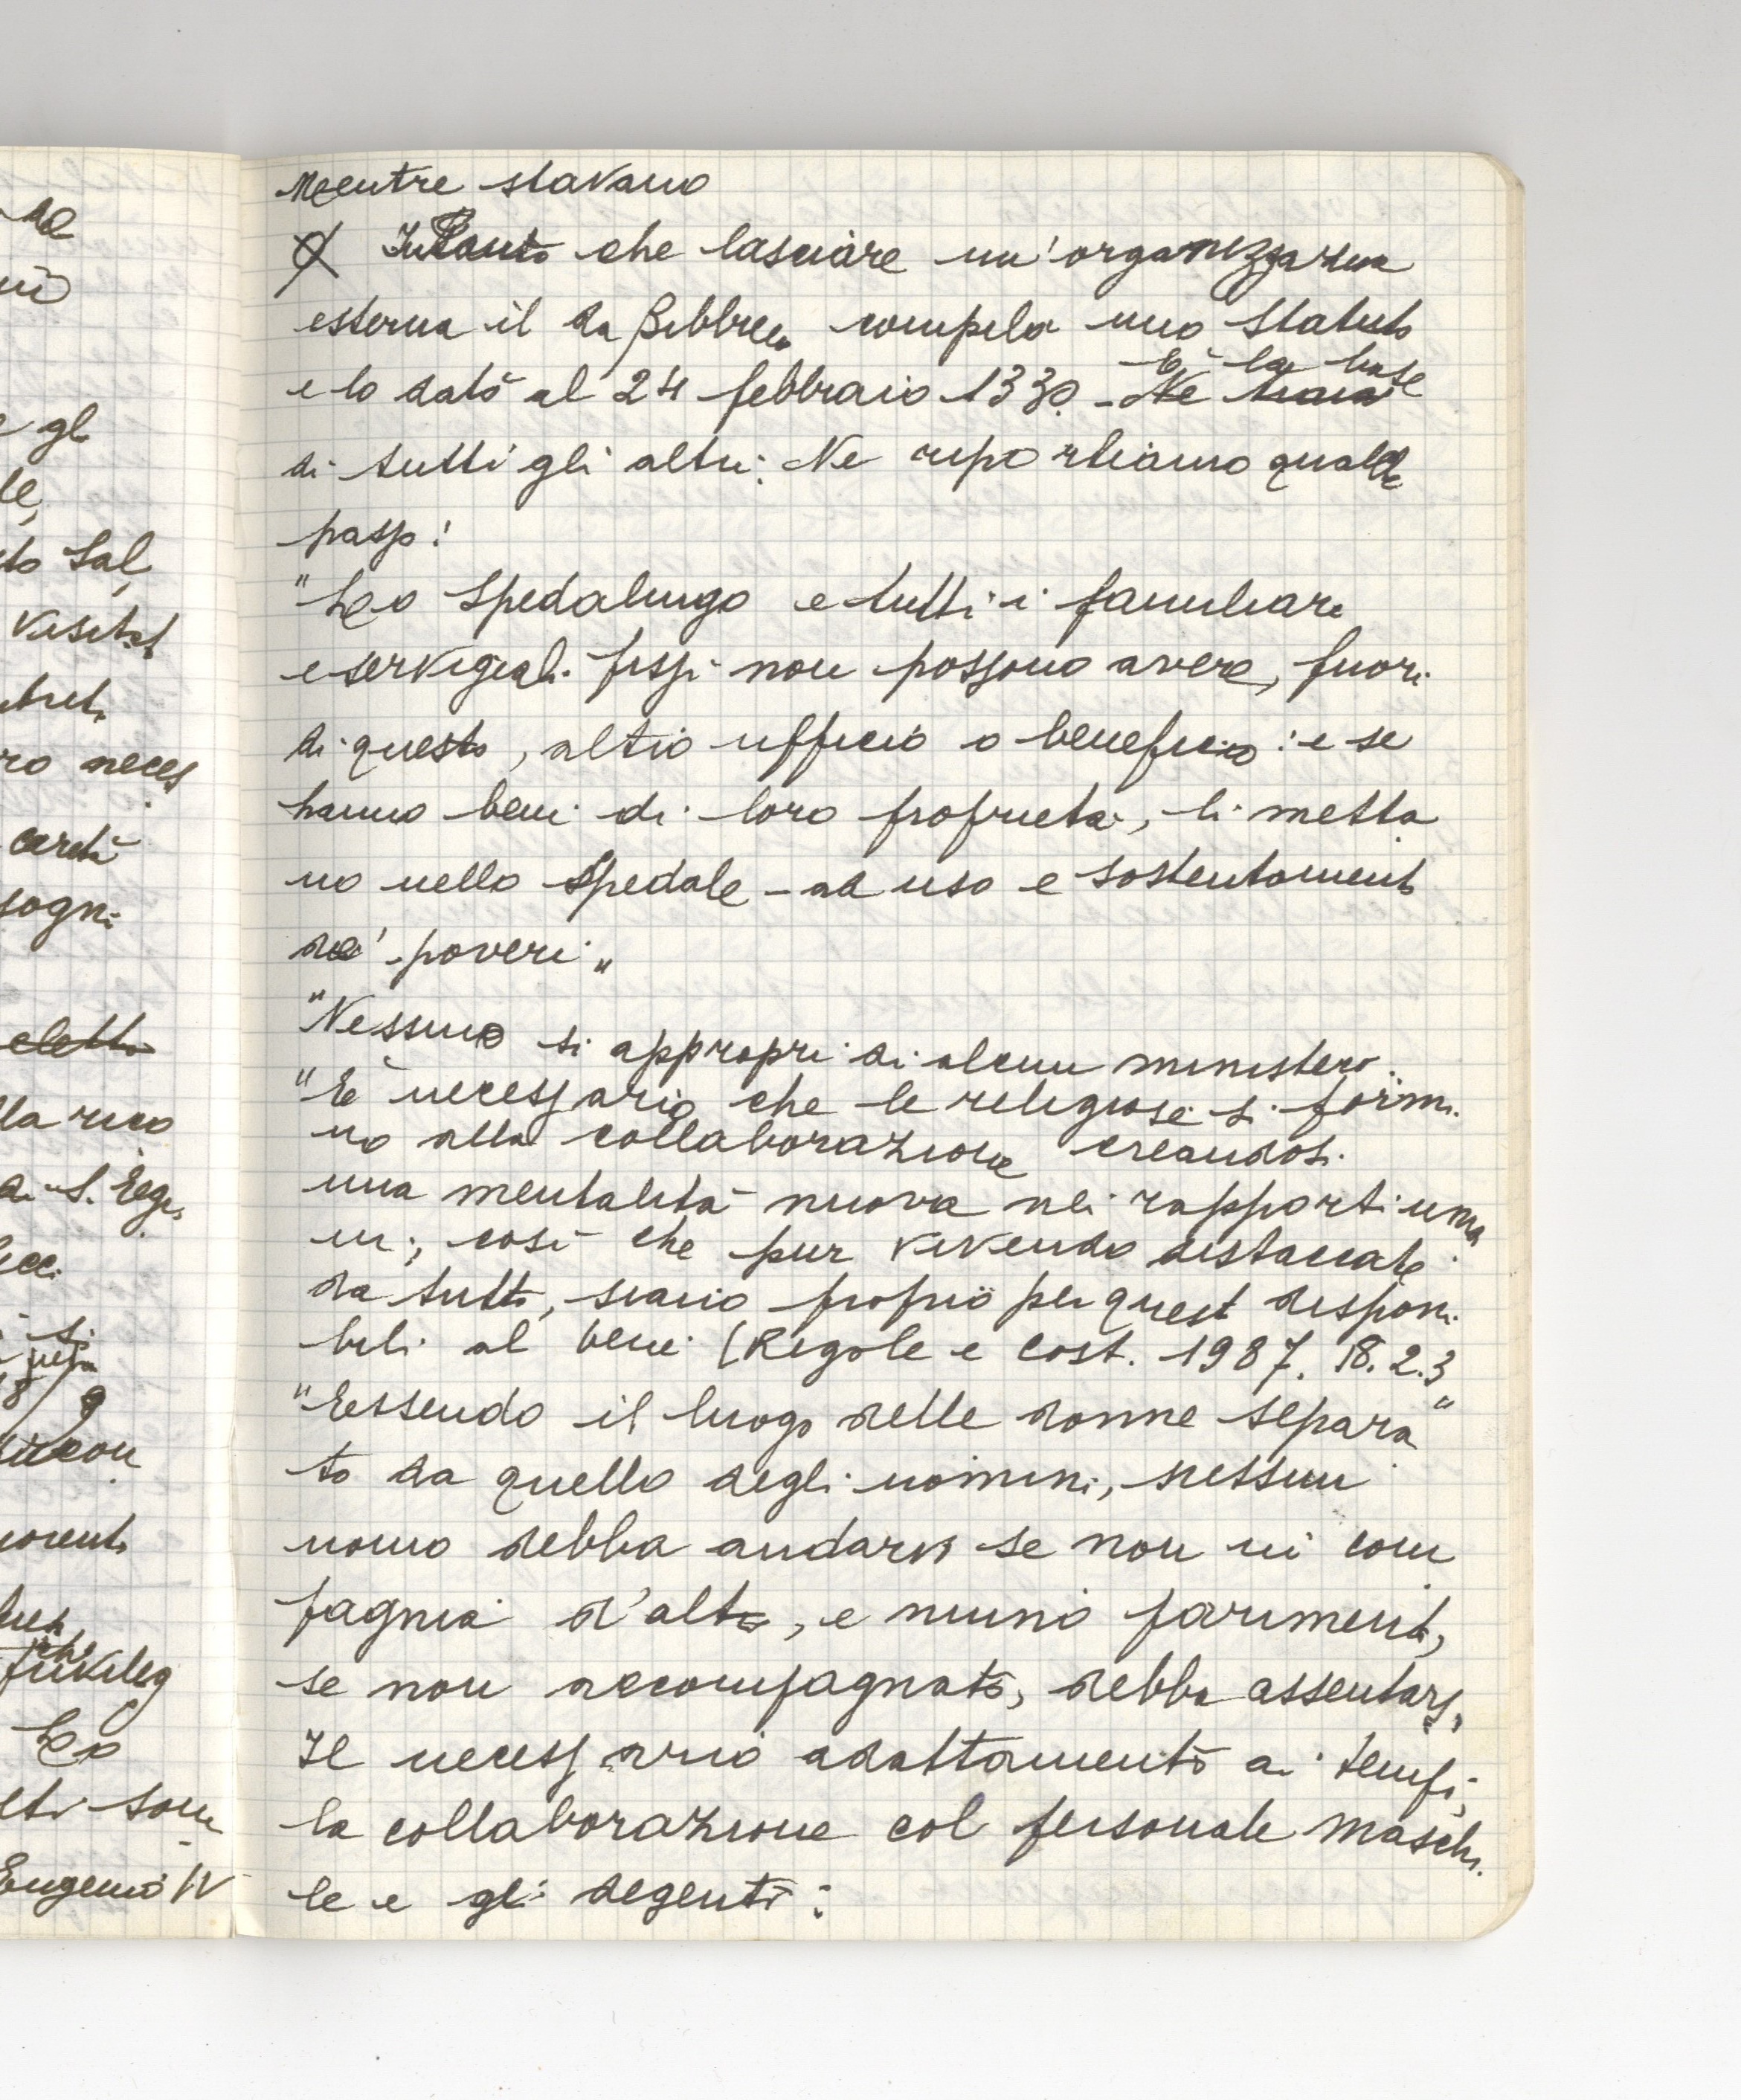 Mentre stavano
che lasciare un'organizzazione
esterna il da Bibbiena compila uno statuto
È la base
e lo datò al 24 febbraio 1330. - Ne
di tutti gli altri: Ne riportiamo qualche
passo:
"Lo Spedalingo e tutti i familiari
e servigiali fissi non possono avere, fuori
di questo, altro ufficio o beneficio: e se
hanno beni di loro proprietà, li metta
no nello Spedale - ad uso e sostentamento
de' poveri"
"Nessuno si appropri di alcun ministero.
"È necessario che le religiose si formi
no alla collaborazione creandosi
una mentalità nuova nei rapporti uma
ni; così che pur vivendo distaccate
da tutto, siano proprio per questo disponi
bili al bene (Regole e Cost. 1987. 18.2.3"
"Essendo il luogo delle donne separa
to da quello degli uomini, nessun
uomo debba andarvi se non in com
pagnia d'altro, e niuno parimenti,
se non accompagnato, debba assentarsi,
Il necessario adattamento ai tempi,
la collaborazione col personale maschi
le e gli degenti:
ro neces
carità
sogni
eletto
Eugenio IV